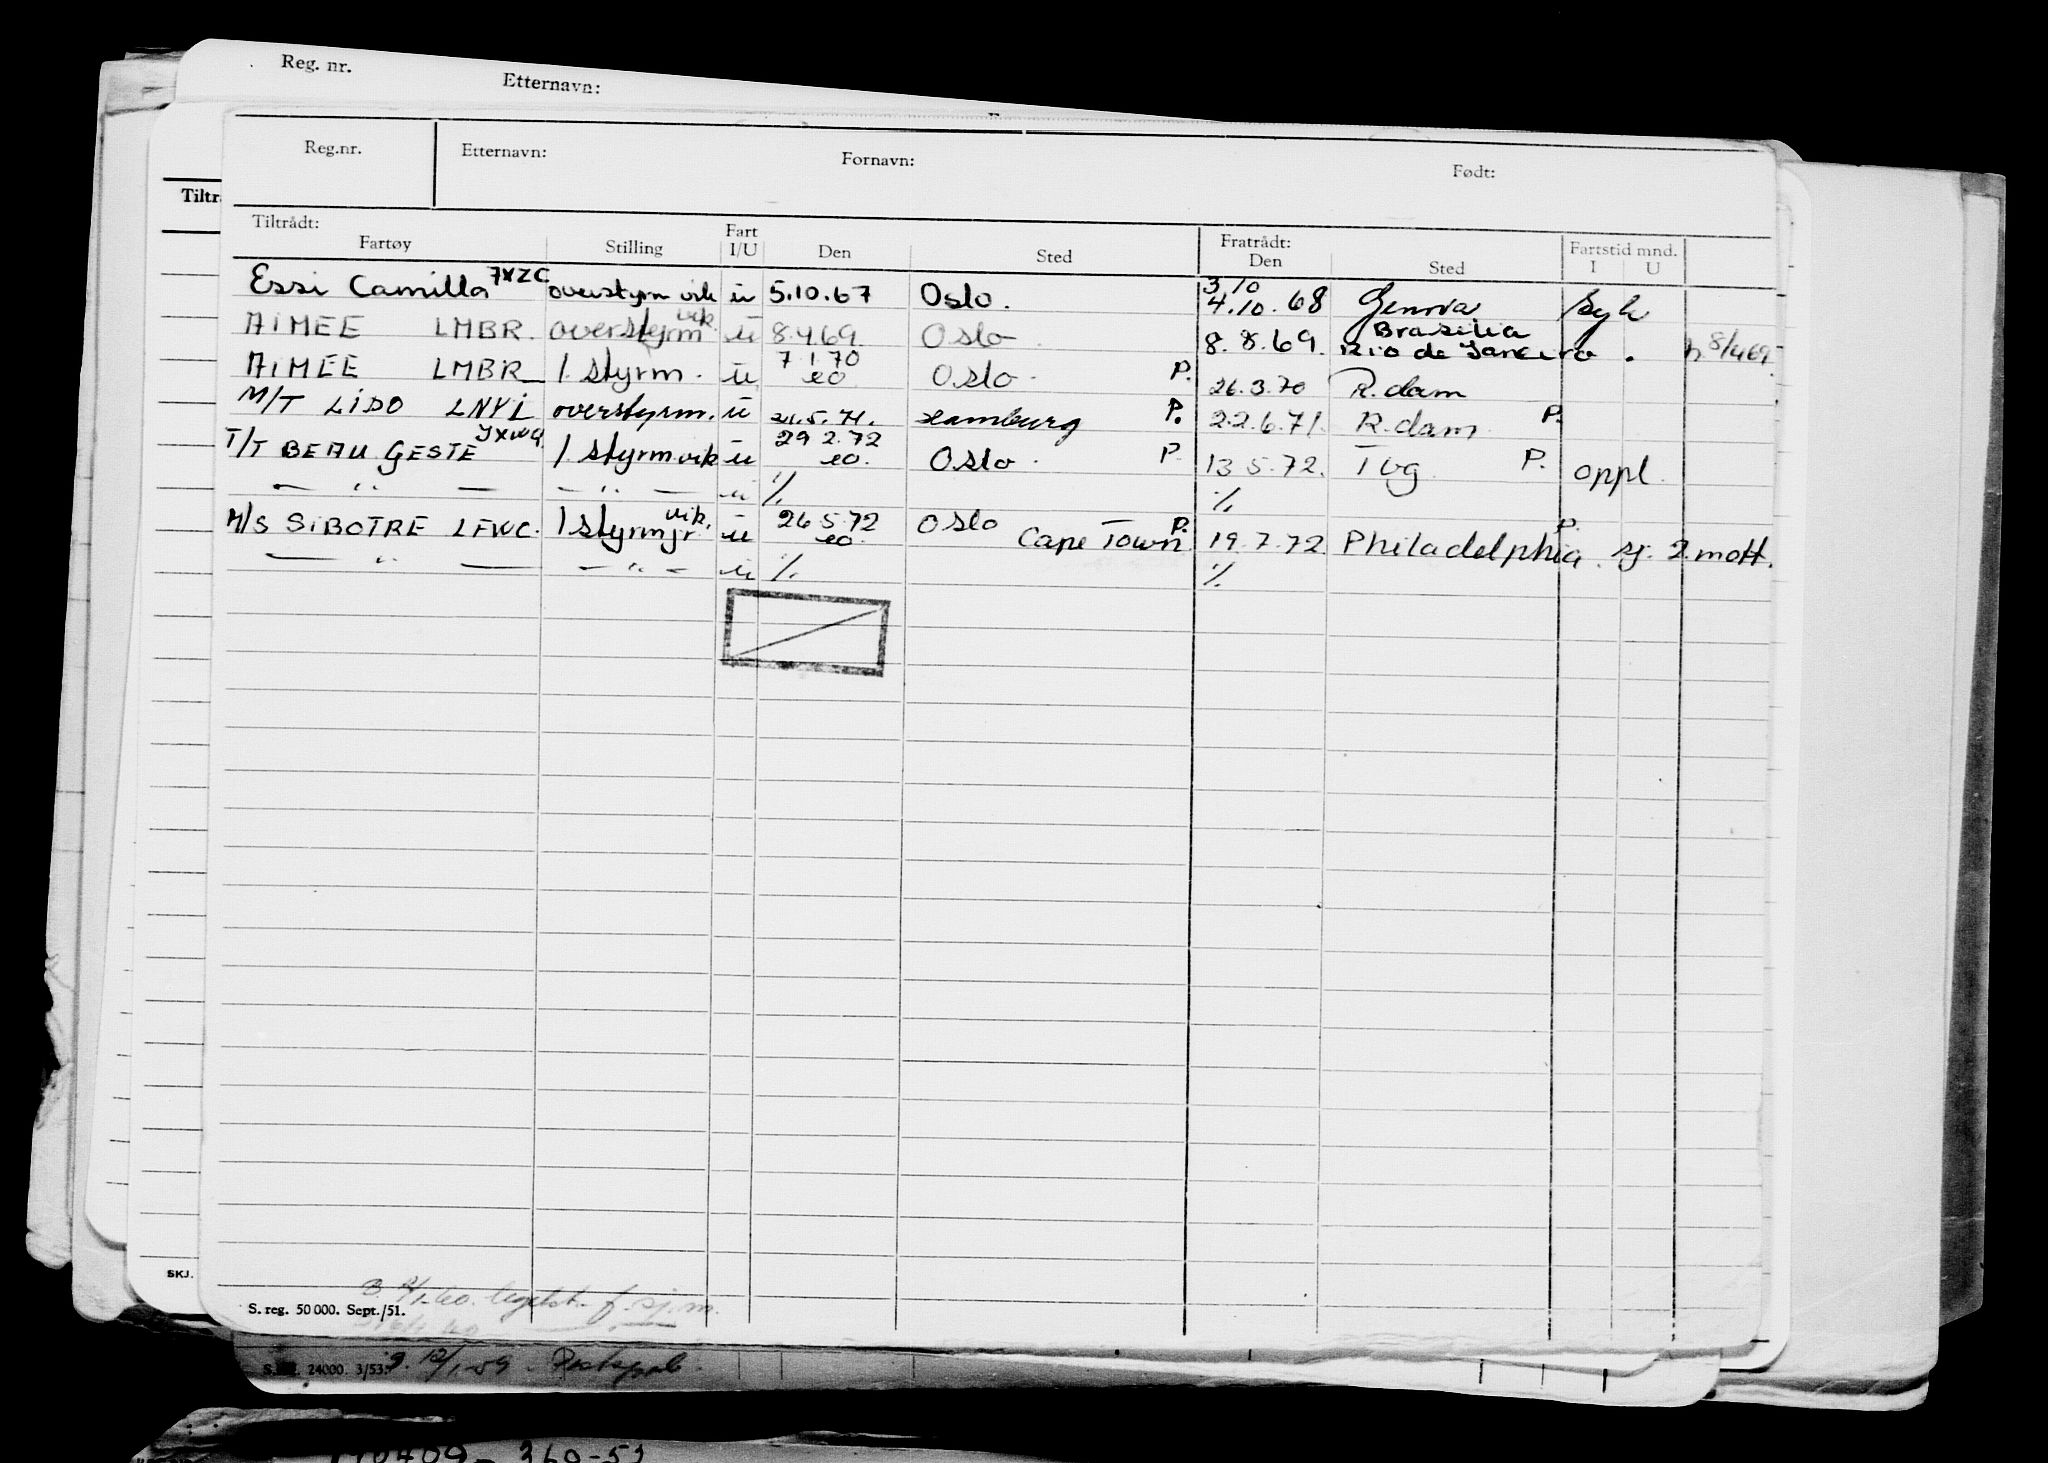 Reg. nr. Etternavn:
Reg.nr. Etternavn: Fornavn: Født:
Tiltrådt: Fartøy Stilling Fart I/U Den Sted Fratrådt: Den Sted Fartstid mnd. I U
Essi Camilla JXZC overstyrm vik u 5.10.67 Oslo. 3/10 4.10.68 Genova syk
AIMEE LMBR. overstyrm vik. u 8.4.69. Oslo 8.8.69. Brasilia Rio de Janeiro . h. 8/4 69.
AIMEE LMBR 1 styrm. u 7 1 70 eo Oslo. P. 26.3.70 R.dam
M/T LIDO LNVI overstyrm. u 21.5.71. Hamburg P. 22.6.71. R.dam P.
T/T BEAU GESTE JXWQ 1 styrm vik u 29 2.72 eo. Oslo. P. 13.5.72. Tbg P. oppl.
— " — — " — u % %
M/S SIBOTRE LFWC. 1 styrm jr vik. u 26 5.72 eo. Oslo Cape Town P. 19.7.72 Philadelphia P. sj. 2. mott.
— " — — " — u % %
S. reg. 50 000. Sept./51.
24000. 3/53.
Tiltr
SKJ.
360-53